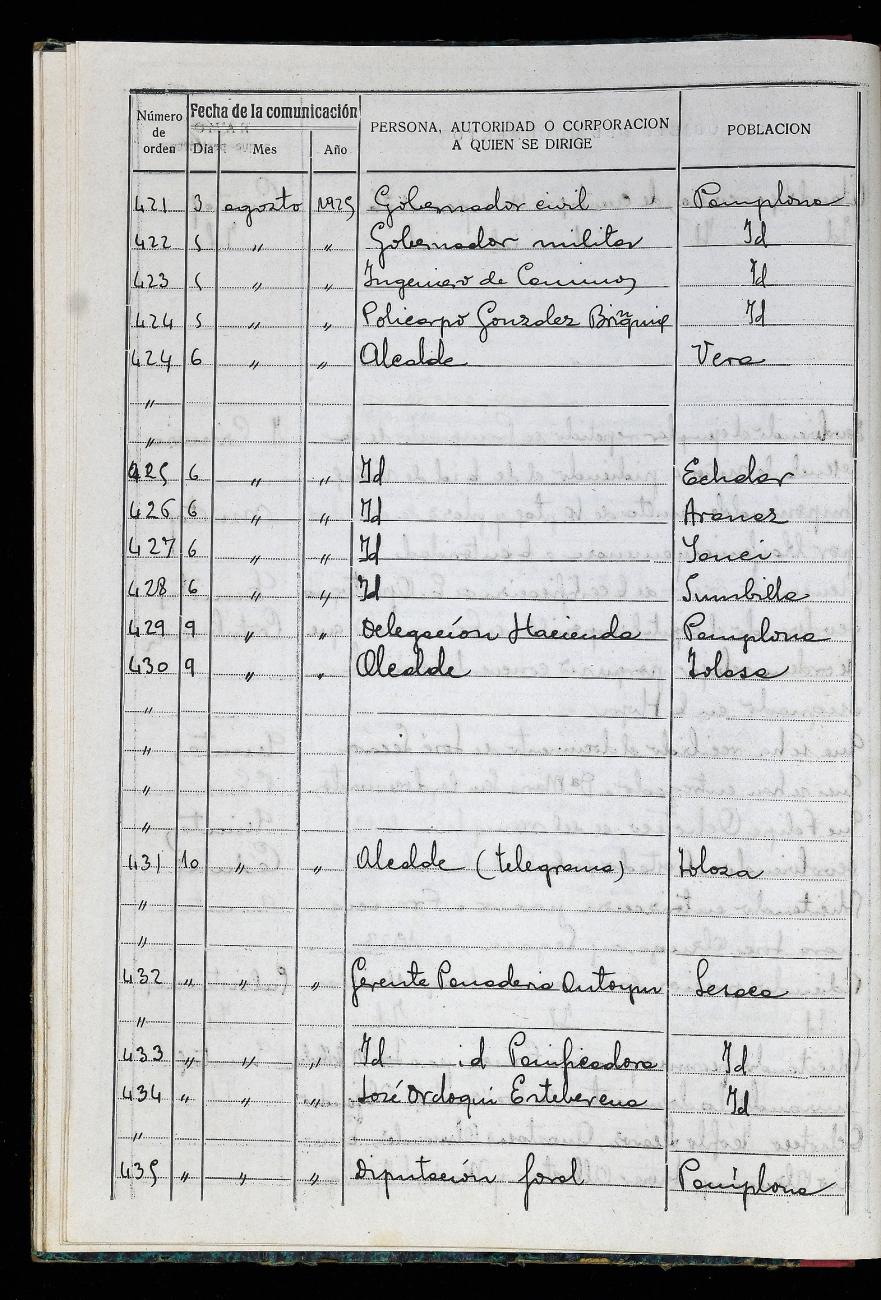 Número de orden | Fecha de la comunicación | PERSONA, AUTORIDAD O CORPORACION A QUIEN SE DIRIGE | POBLACION
Día | Mes | Año
421 3 agosto 1925 Gobernador civil Pamplona
422 5 " " Gobernador militar Id
423 5 " " Ingeniero de Caminos Id
424 5 " " Policarpo Gonzalez Id
424 6 " " Alcalde Vera
"
"
425 6 " " Id Echalar
426 6 " " Id Aranaz
427 6 " " Id Yanci
428 6 " " Id Sumbilla
429 9 " " Delegación Hacienda Pamplona
430 9 " " Alcalde Tolosa
"
"
"
"
431 10 " " Alcalde (telegrama) Tolosa
"
"
432 " " " Gerente Panaderia Lesaca
"
433 " " " Id id Panificadora Id
434 " " " José Ordoqui Id
"
435 " " " Diputación foral Pamplona